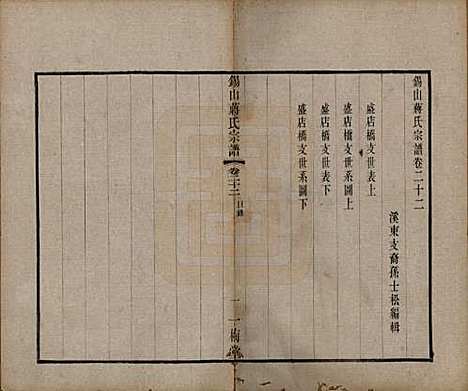 錫山蔣氏宗譜卷二十二
溪東支裔孫士松編輯
盛店橋支世表上
盛店橋支世系圖上
盛店橋支世表下
盛店橋支世系圖下
錫山蔣氏宗譜
卷二十二
目錄
一
一梅堂